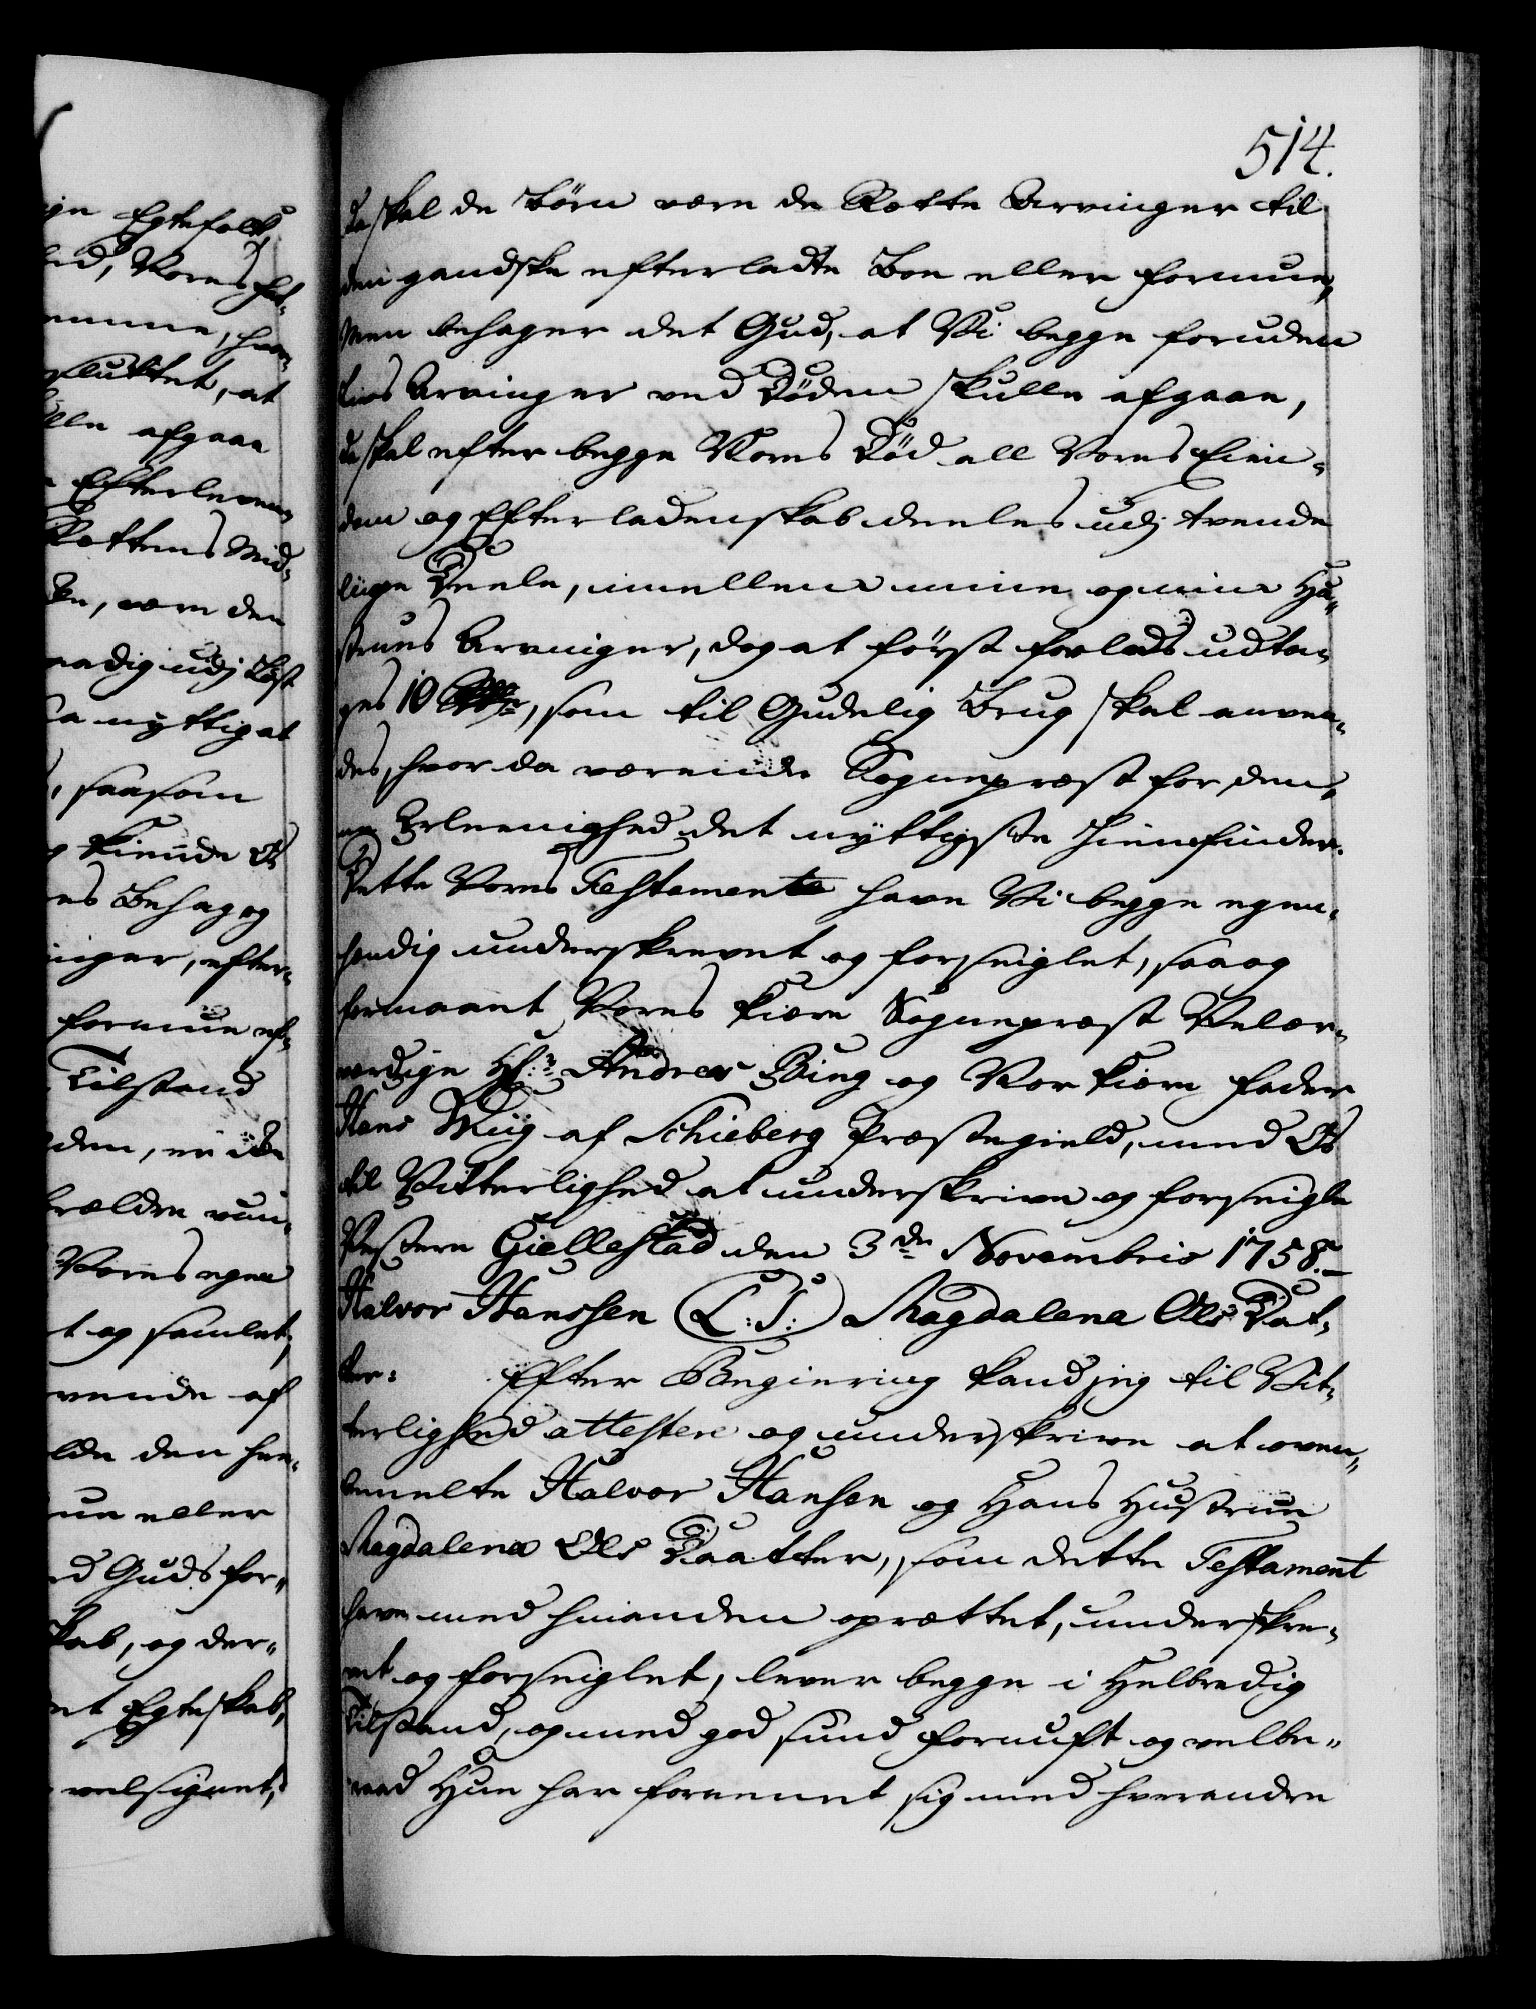 514.
da skal de Børn være de Rette Arvinger til
den gandske efterladte Boe eller formue,
Men behager det Gud, at Vi begge foruden
Livs Arvinger ved Døden skulle afgaae,
da skal efter begge Vores Død all Vores Eien-
dom og Efterladenskab deeles udj tvende
liige Deele, imellem mine og min Hu-
strues Arvinger, dog at først forlods udta-
ges 10 Rdr, som til Gudelig Brug skal anven-
des, hvor da værende Sognepræst for den-
ne Leylighed det nyttigste hinne finder.
Dette Vores Testamente have Vi begge egen-
hændig underskrevet og forseiglet, saa og
formaaet Vores kiære Sognepræst Velær-
værdige Hr. Andreas Bing og Vor kiære fader
Hans Wiig af Schieberg Præstegield, med Os
til Vitterlighed at underskrive og forseigle
Vestere Giellestad den 3de Novembris 1758.
Halvor Hanssen (L:S:) Magdalena Ols Dat-
ter: Efter Begiering kand jeg til Vit-
terlighed attestere og underskrive at oven-
bemelte Halvor Hansen og Hans Hustrue
Magdalena Ols Daatter, som dette Testament
have med hinanden oprættet, underskre-
vet og forseiglet, lever begge i Helbredig
Tilstand, og med god sund fornuft og velbe-
raad Hue har foreenet sig med hverandre